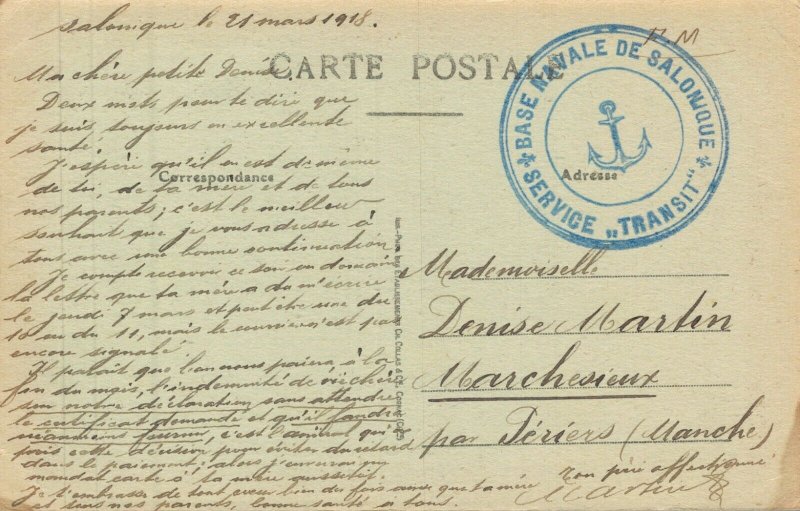 Salonique le 21 mars 1918.
F.M
CARTE POSTALE
Ma chère petite Denise
Deux mots pour te dire que
je suis toujours en excellente
santé.
J'espère qu'il en est de même
Correspondance
de toi, de ta mère et de tous
nos parents; c'est le meilleur
souhait que je vous adresse à
tous avec une bonne continuation
Je compte recevoir ce soir ou demain
la lettre que ta mère a du m'écrire
le jeudi 7 mars et peut être une du
10 ou du 11, mais le courrier n'est pas
encore signalé.
Il paraît que l'on nous paiera à la
fin du mois, l'indemnité de
sur notre déclaration sans attendre
le certificat demandé et qu'il faudra
néanmoins fournir, c'est l'amiral qui a
pris cette décision pour éviter du retard
dans le paiement; alors j'enverrai un
mandat carte à ta mère aussitôt.
Je t'embrasse de tout cœur bien des fois ainsi que ta mère
et tous nos parents, bonne santé à tous.
Ton père affectionné
Martin
BASE NAVALE DE SALONIQUE
SERVICE „TRANSIT"
Adresse
Mademoiselle
Denise Martin
Marchesieux
par Périers (Manche)